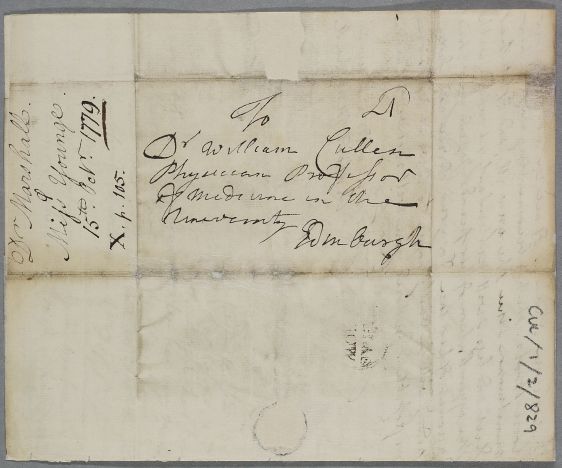 To
Dr William Cullen
Physician Professor
of Medicine in the
Univercity
Edinburgh
Dr Marshall.
Miss Younge.
15th Octr. 1779.
X. p. 105.
Cul/1/2/829